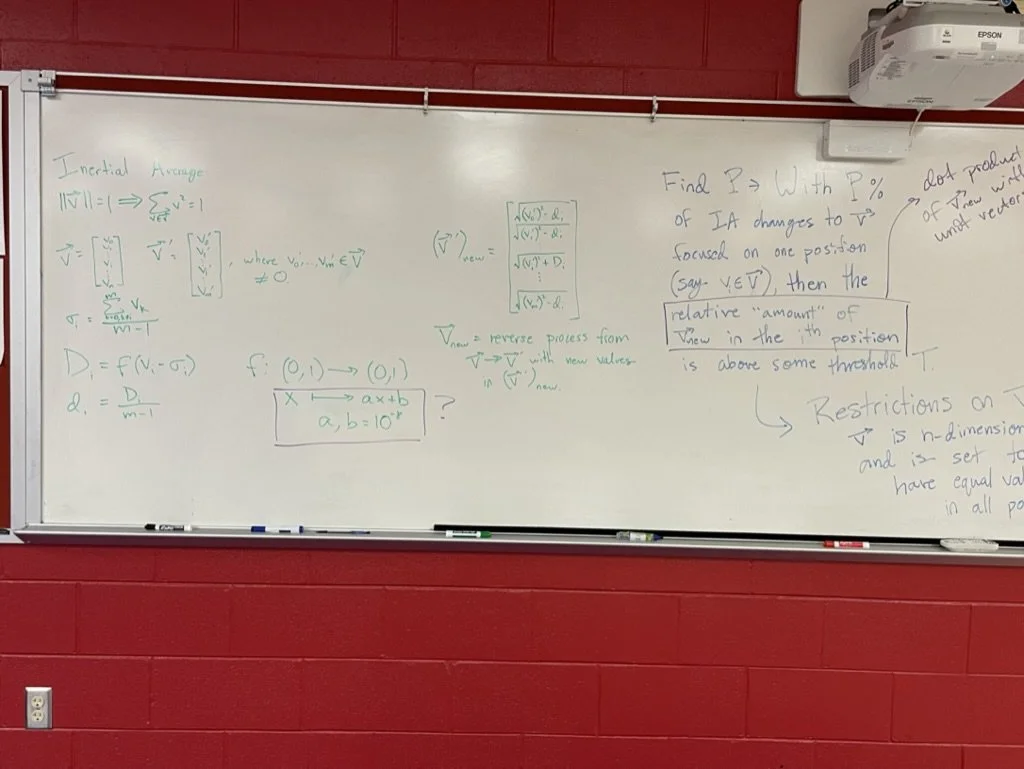 Inertial Average
||v⃗|| = 1 ⟹ Σ v² = 1
v∈v⃗
v⃗ = [v₀ v₁ ⋮ vₙ] v⃗' = [v₀' v₁' ⋮ vᵢ' ⋮ vₘ'], where v₀',...,vₘ' ∈ v⃗
≠ 0
σᵢ = Σ vₖ / m-1
Dᵢ = f(vᵢ - σᵢ)
dᵢ = Dᵢ / m-1
f: (0,1) ⟶ (0,1)
x ⟼ ax+b
?
(v⃗')new =
√(v₀')² - dᵢ
√(v₁')² - dᵢ
⋮
√(vᵢ')² + Dᵢ
⋮
√(vₘ')² - dᵢ
v⃗new = reverse process from
v⃗ → v⃗' with new values
in (v⃗')new.
Find P ∋ With P%
of IA changes to v⃗
focused on one position
(say vᵢ ∈ v⃗), then the
relative "amount" of
v⃗new in the iᵗʰ position
is above some threshold T.
dot product
of v⃗new with
unit vector
Restrictions on
v⃗ is n-dimension
and is set to
have equal val
in all po
EPSON
EPSON